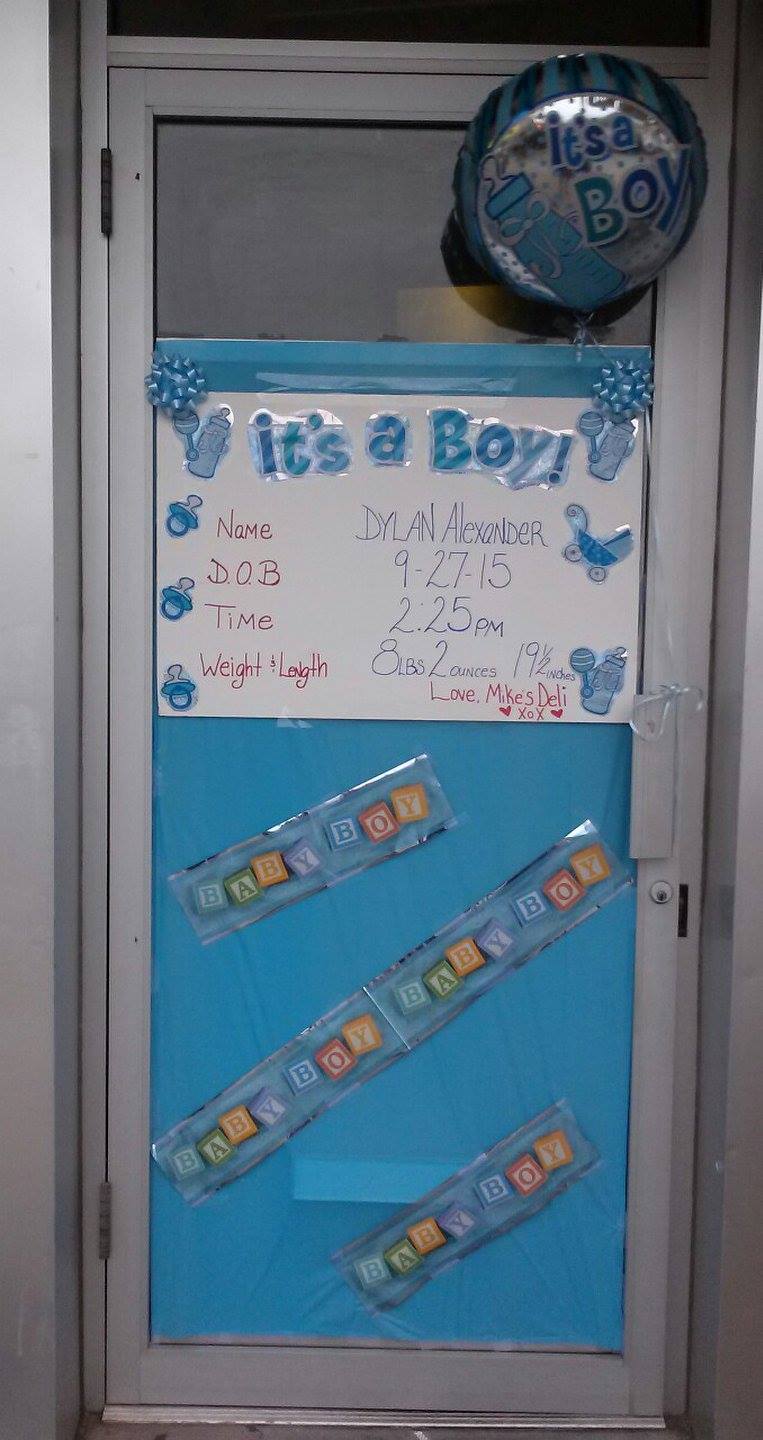 it's a
Boy
it's a Boy!
Name DYLAN Alexander
D.O.B 9-27-15
Time 2:25PM
Weight & Length 8LBS 2 OUNCES 19 1/2 INCHES
Love, Mike's Deli
XOX
BABY BOY
BABY BOY
BABY BOY
BABY BOY